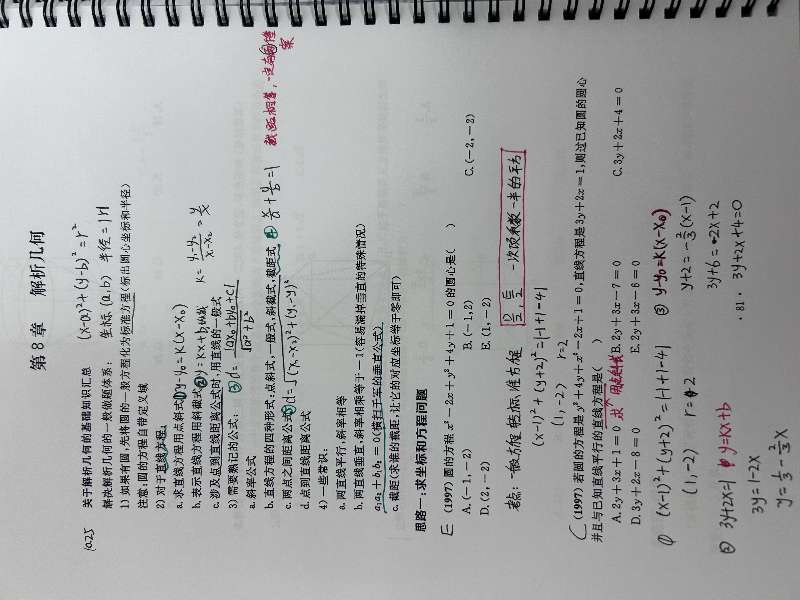 第 8 章　解析几何
10.25
关于解析几何的基础知识汇总　(x-a)²+(y-b)²=r²
解决解析几何的一般做题体系：　坐标(a,b)　半径=|r|
1) 如果有圆,先将圆的一般方程化为标准方程(标出圆心坐标和半径)
注意:圆的方程自带定义域
2) 对于直线方程:
a. 求直线方程用点斜式①y-y₀=K(x-x₀)
b. 表示直线方程用斜截式②y=Kx+b
c. 涉及点到直线距离公式时,用直线的一般式
3) 需要熟记的公式:　③d=|ax₀+by₀+c|/√(a²+b²)
a. 斜率公式　K=(y-y₀)/(x-x₀)
b. 直线方程的四种形式:点斜式,一般式,斜截式,截距式④ x/a+y/b=1
c. 两点之间距离公式⑤d=√((x₁-x₂)²+(y₁-y₂)²)
d. 点到直线距离公式
4) 一些常识:
a. 两直线平行,斜率相等
b. 两直线垂直,斜率相乘等于-1(容易漏掉垂直的特殊情况)
a₁a₂+b₁b₂=0(横扫千军的垂直公式)
c. 截距(求谁的截距,让它的对应坐标等于零即可)
思路一:求坐标和方程问题
E (1997)圆的方程 x²-2x+y²+4y+1=0 的圆心是(　　)
A. (-1,-2)　B. (-1,2)　C. (-2,-2)
D. (2,-2)　E. (1,-2)
考点:一般方程转标准方程　一次项系数一半的平方
(x-1)²+(y+2)²=|-1+1-4|
(1,-2)　r=2
C (1997)若圆的方程是 y²+4y+x²-2x+1=0,直线方程是 3y+2x=1,则过已知圆的圆心
并且与已知直线平行的直线方程是(　　)
A. 2y+3x+1=0　B. 2y+3x-7=0　C. 3y+2x+4=0
D. 3y+2x-8=0　E. 2y+3x-6=0
① (x-1)²+(y+2)²=|-1+1-4|
(1,-2)　r=2
② 3y+2x=1　y=Kx+b
3y=1-2x
y=1/3-2/3x
③ y-y₀=K(x-x₀)
y+2=-2/3(x-1)
3y+6=-2x+2
3y+2x+4=0
· 81 ·